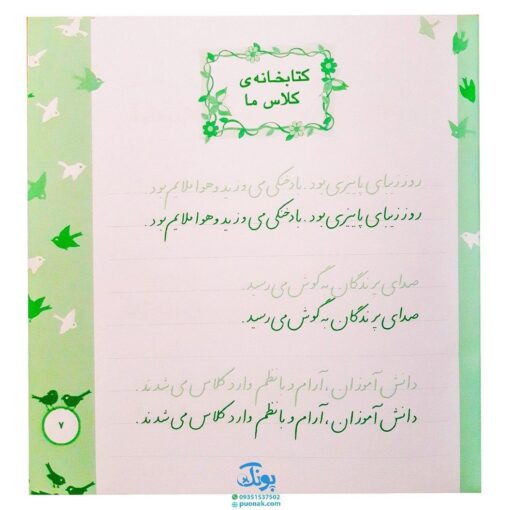 کتابخانه‌ی
کلاس ما
روز زیبای پاییزی بود. باد خنکی می‌وزید و هوا ملایم بود.
روز زیبای پاییزی بود. باد خنکی می‌وزید و هوا ملایم بود.
صدای پرندگان به گوش می‌رسید.
صدای پرندگان به گوش می‌رسید.
دانش آموزان، آرام و با نظم وارد کلاس می‌شدند.
دانش آموزان، آرام و با نظم وارد کلاس می‌شدند.
۷
پونک
09351537502
puonak.com